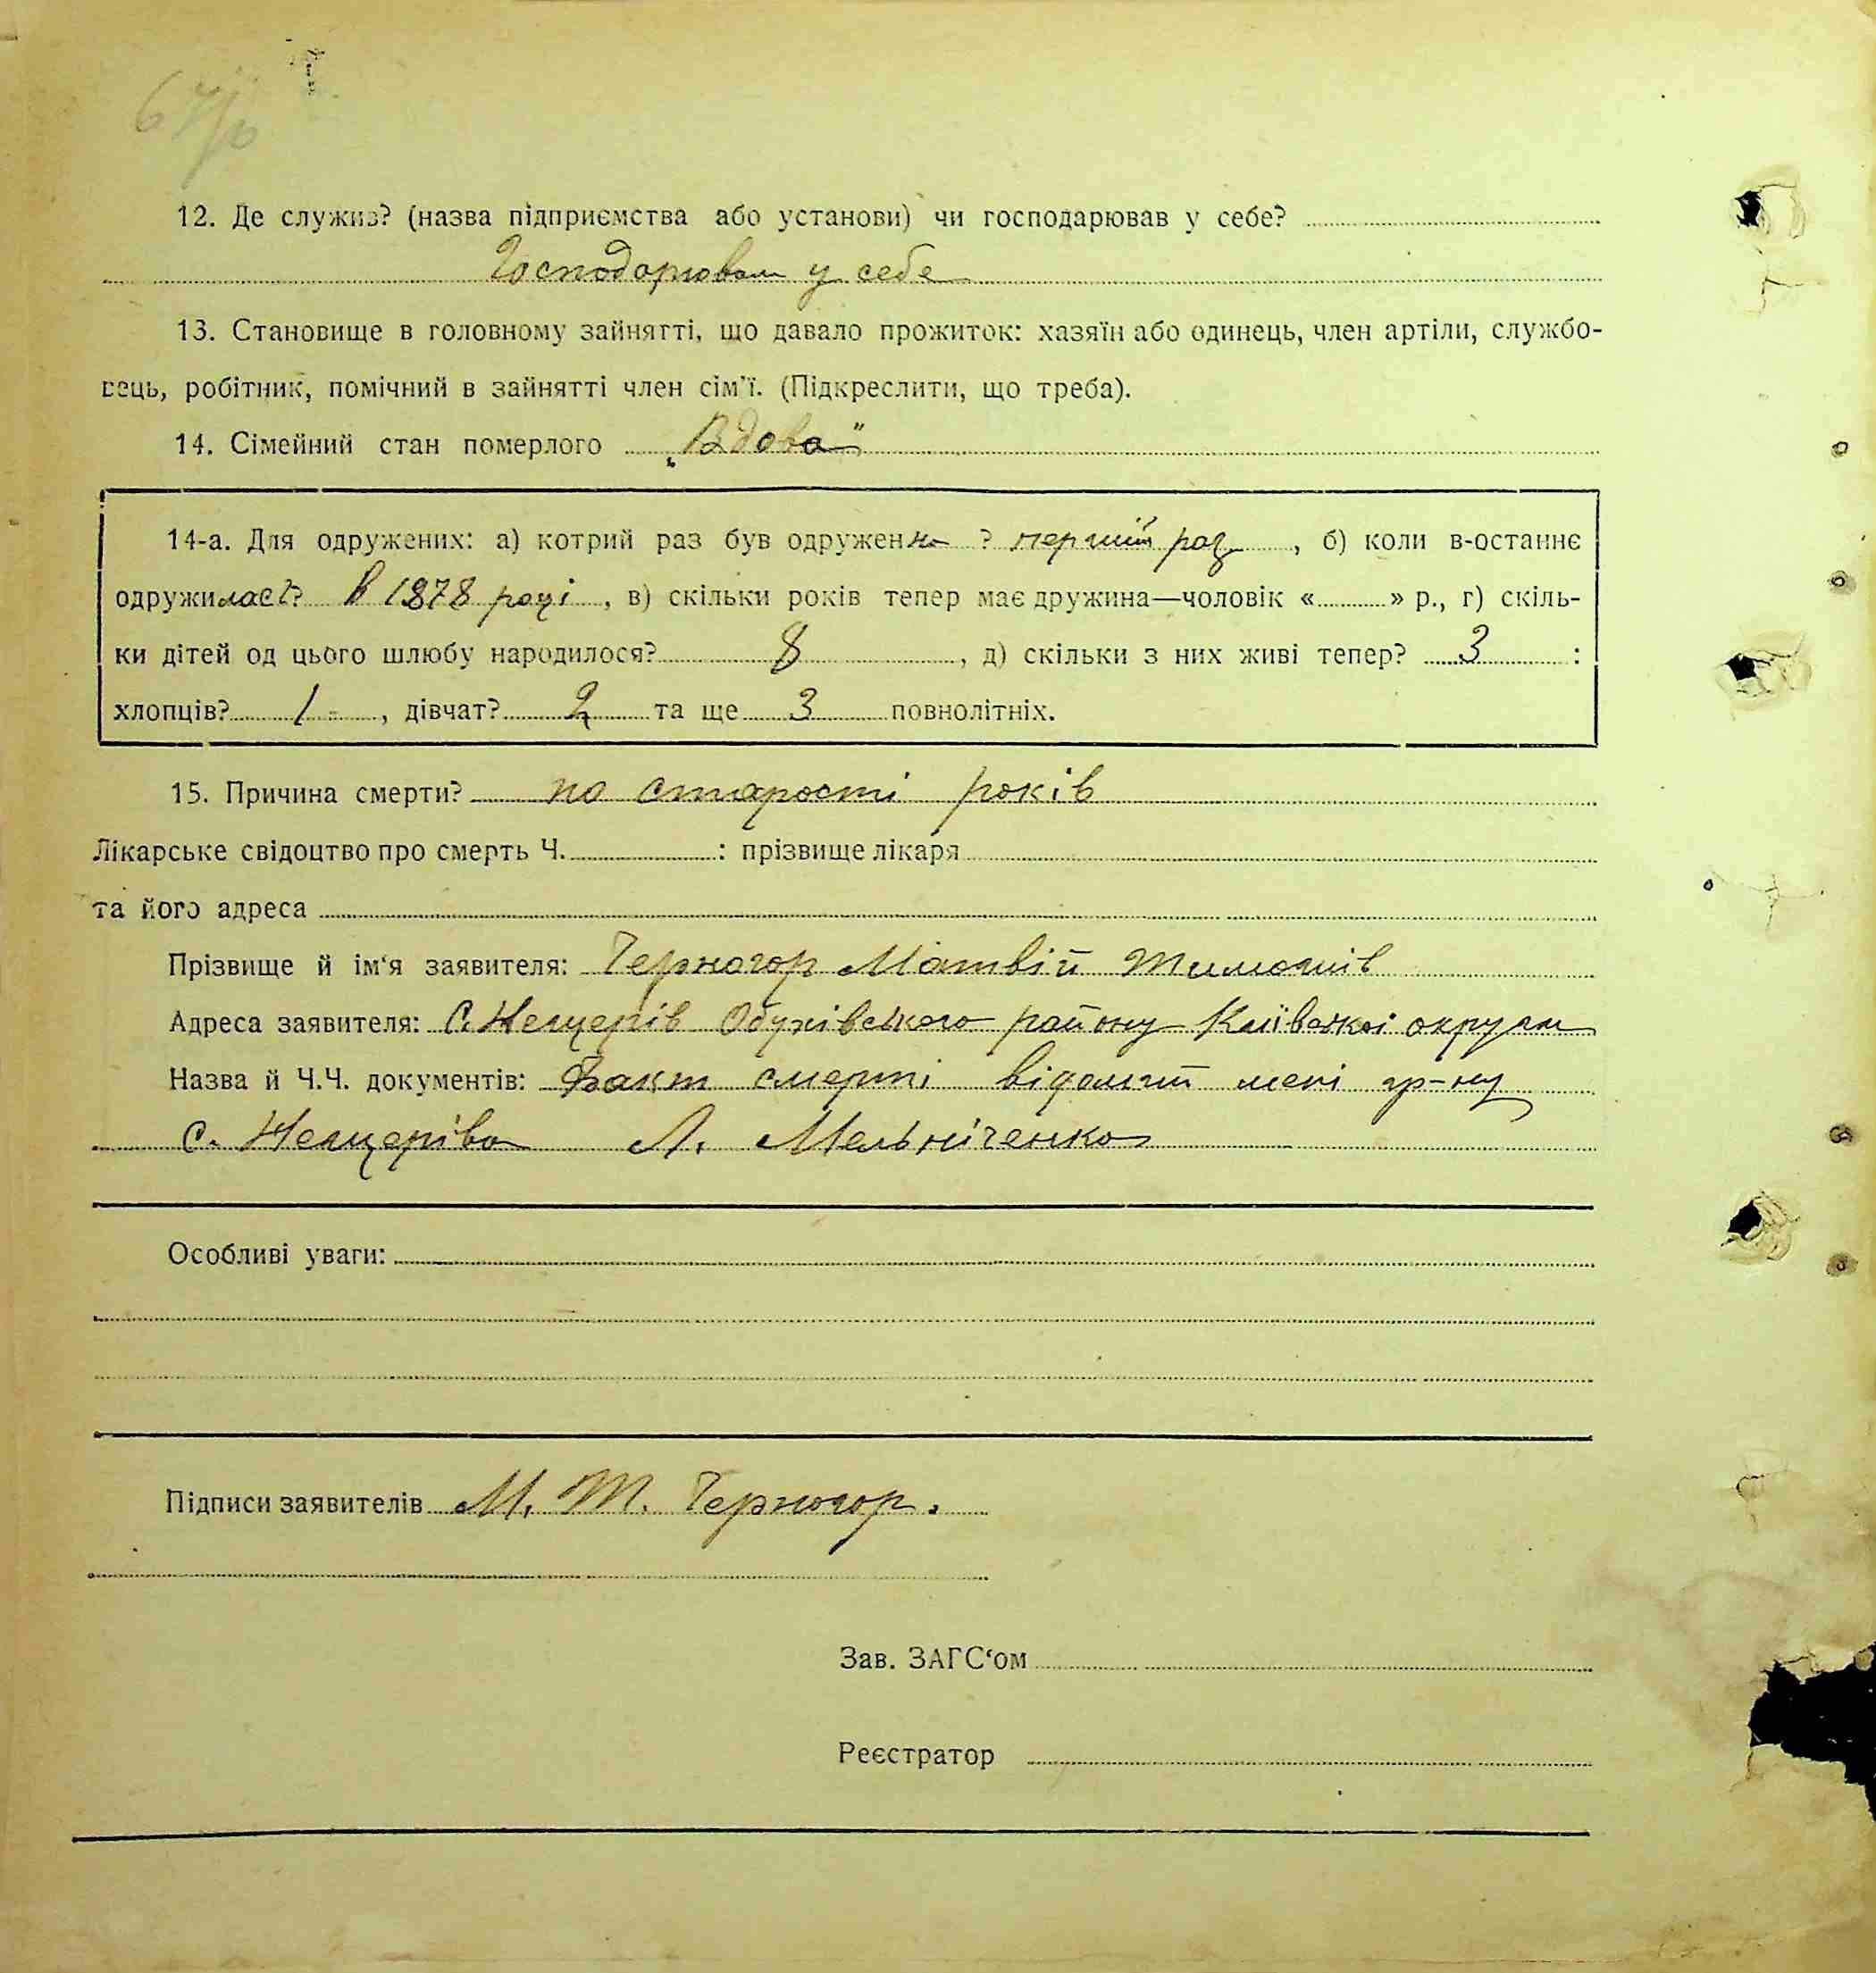 12. Де служив? (назва підприємства або установи) чи господарював у себе?
Господорювала у себе
13. Становище в головному зайнятті, що давало прожиток: хазяїн або одинець, член артіли, службо-
вець, робітник, помічний в зайнятті член сім'ї. (Підкреслити, що треба).
14. Сімейний стан померлого „Вдова"
14-а. Для одружених: а) котрий раз був одружена ? перший раз, б) коли в-останнє
одружилась? в 1878 році, в) скільки років тепер має дружина—чоловік «» р., г) скіль-
ки дітей од цього шлюбу народилося? 8, д) скільки з них живі тепер? 3 :
хлопців? 1, дівчат? 2 та ще 3 повнолітніх.
15. Причина смерти? по старості років
Лікарське свідоцтво про смерть Ч. : прізвище лікаря
та його адреса
Прізвище й ім'я заявителя: Черногор Матвій Тимошів
Адреса заявителя: С. Нещерів Обухівського району Київської округи
Назва й Ч.Ч. документів: Факт смерті відомий мені гр-ну
с. Нещерова Л. Мельніченко
Особливі уваги:
Підписи заявителів М. Т. Черногор.
Зав. ЗАГС'ом
Реєстратор